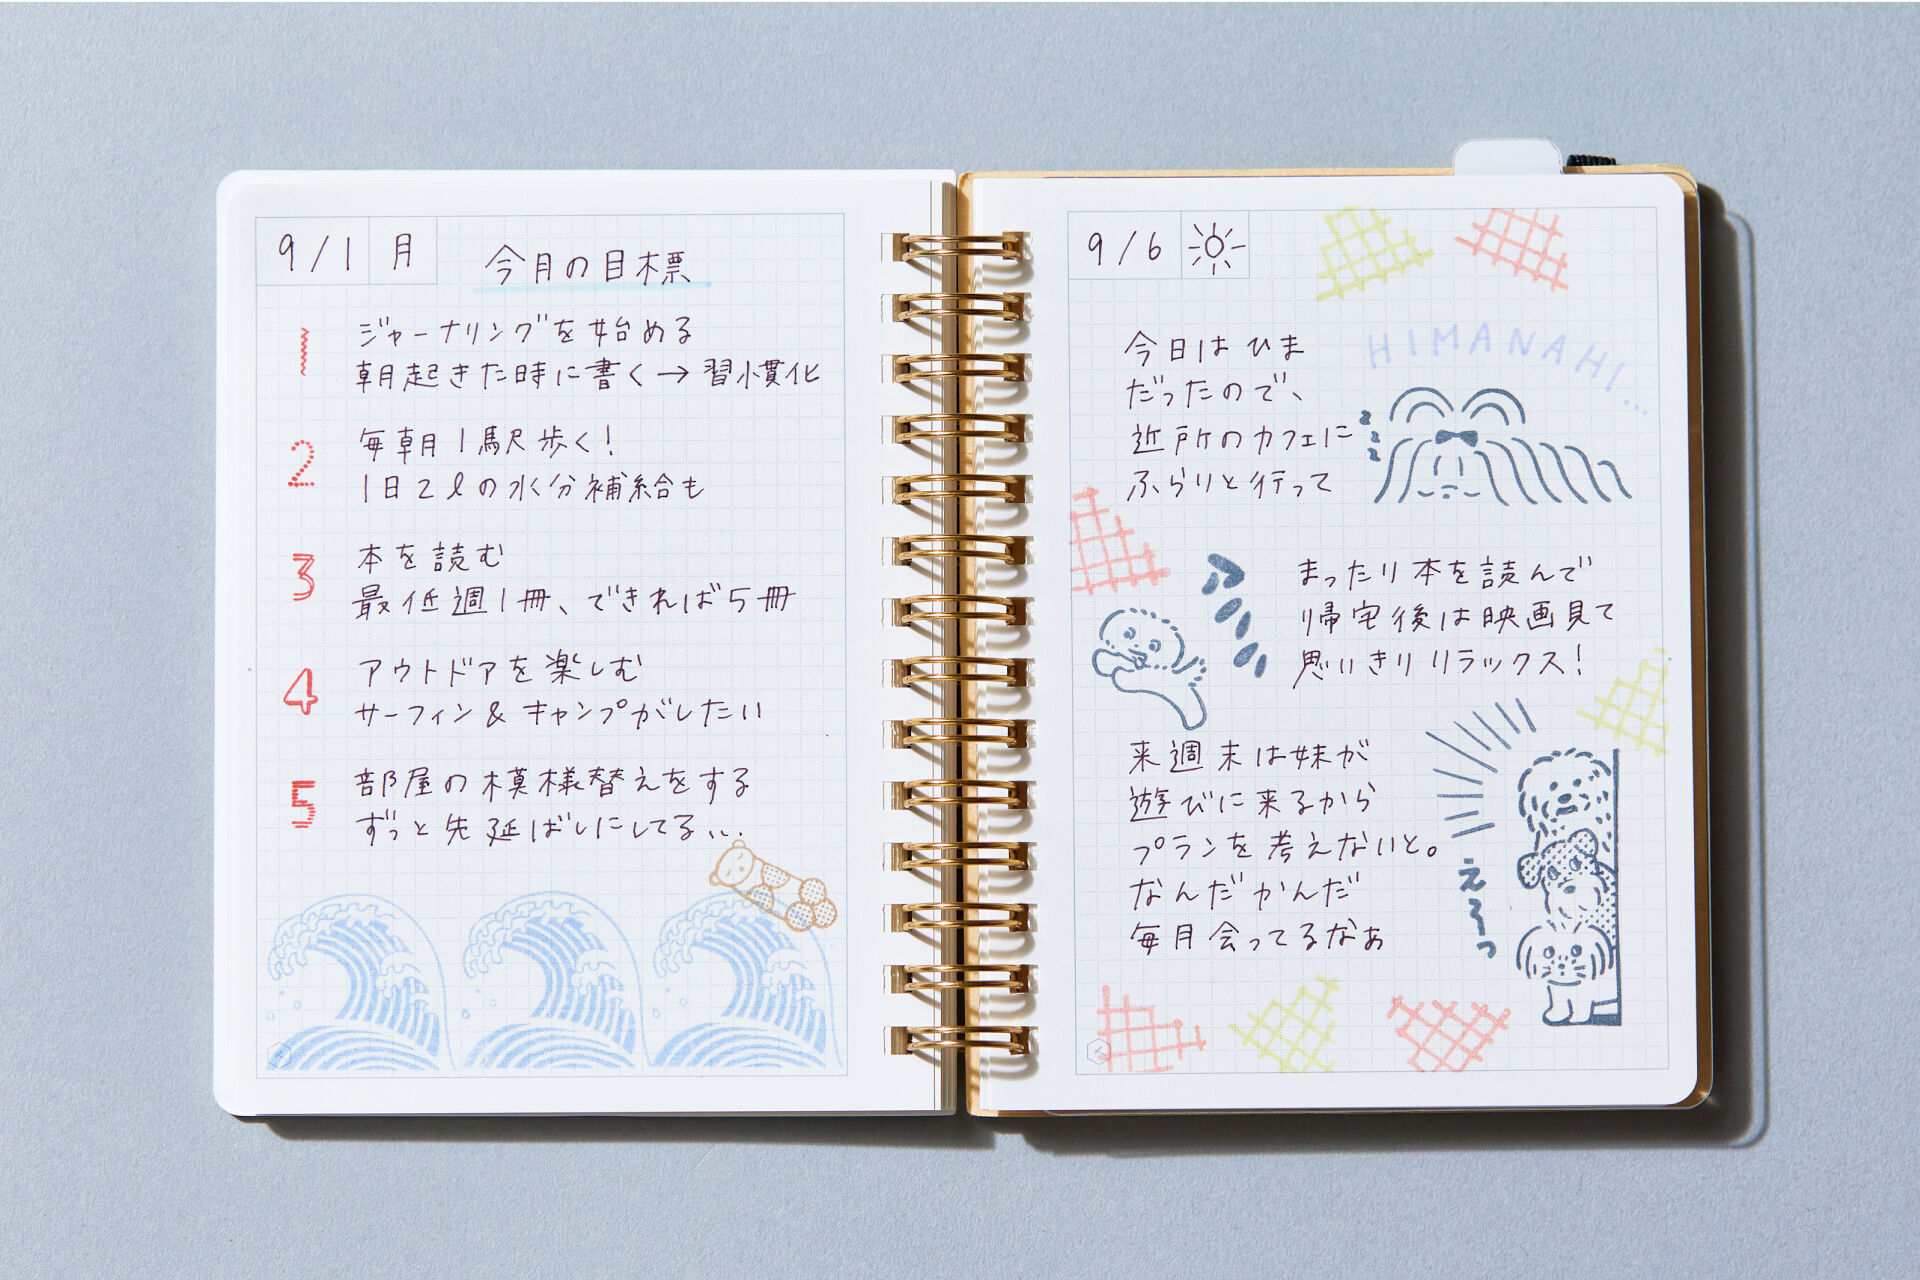 9/1 月
今月の目標
1 ジャーナリングを始める
朝起きた時に書く→習慣化
2 毎朝1駅歩く!
1日2ℓの水分補給も
3 本を読む
最低週1冊、できれば5冊
4 アウトドアを楽しむ
サーフィン&キャンプがしたい
5 部屋の模様替えをする
ずっと先延ばしにしてる...
9/6
HIMANAHI...
今日はひま
だったので、
zzz
近所のカフェに
ふらりと行って
まったり本を読んで
帰宅後は映画見て
思いきりリラックス!
来週末は妹が
遊びに来るから
プランを考えないと。
なんだかんだ
毎月会ってるなぁ
え〜っ